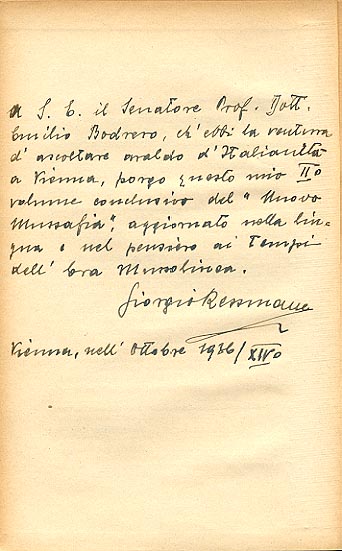 A S. E. il Senatore Prof. Dott.
Emilio Bodrero, ch'ebbi la ventura
d'ascoltare araldo d'Italianità
a Vienna, porgo questo mio IIº
volume conclusivo del "Nuovo
Mussafia", aggiornato nella lin-
gua e nel pensiero ai Tempi
dell'Era Mussolinea.
Giorgio Ressmann
Vienna, nell'Ottobre 1936/XIVº